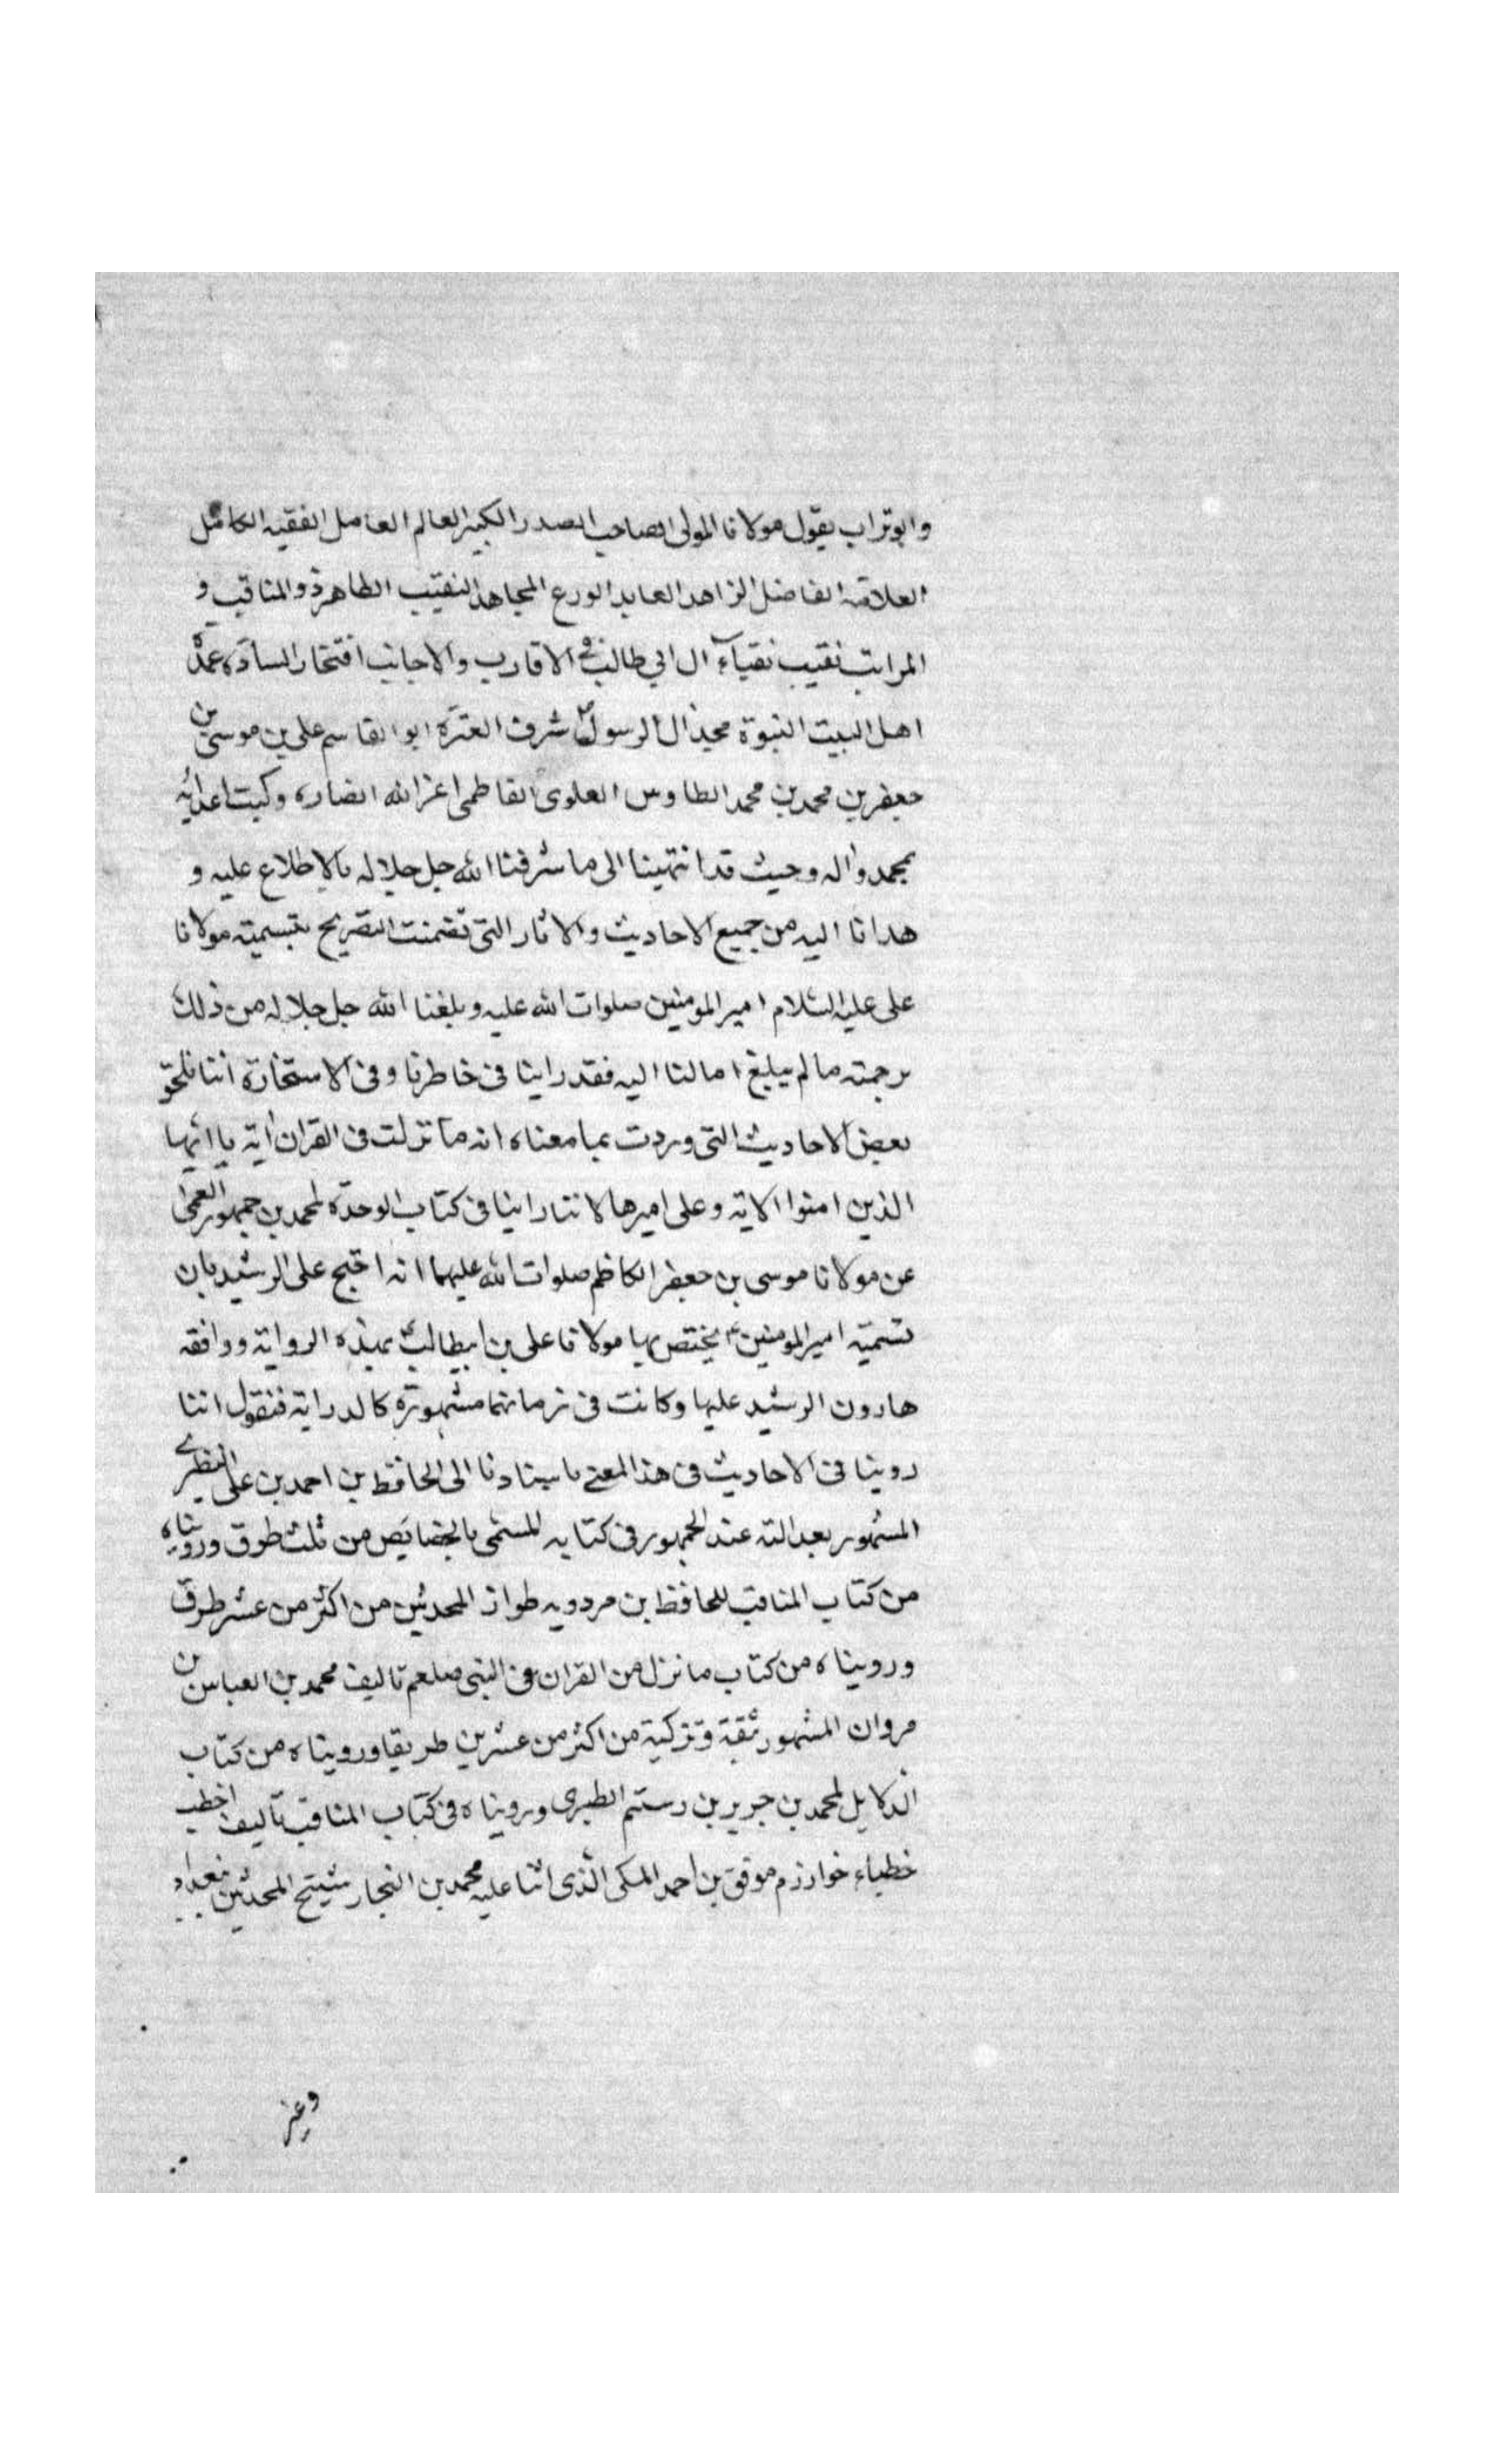 وابوتراب يقول مولانا المولى الصاحب الصدر الكبير العالم العامل الفقيه الكامل
العلامة الفاضل الزاهد العابد الورع المجاهد النقيب الطاهر ذو المناقب و
المراتب نقيب نقباء آل ابي طالب في الاقارب والاجانب افتخار السادة عمدة
اهل البيت النبوة مجد آل الرسول شرف العترة ابو القاسم علي بن موسى بن
جعفر بن محمد بن محمد الطاوس العلوى الفاطمى اعز الله انصاره وكبت اعدائه
بمحمد واله وحيث قد انتهينا الى ما شرفنا الله جل جلاله بالاطلاع عليه و
هدانا اليه من جميع الاحاديث والاثار التى تضمنت التصريح بتسمية مولانا
على عليه السلام امير المومنين صلوات الله عليه وبلغنا الله جل جلاله من ذلك
برحمته ما لم يبلغ امالنا اليه فقد راينا فى خاطرنا وفى الاستخارة اننا نلحق
بعض الاحاديث التى وردت بما معناه انه ما نزلت فى القران اية يا ايها
الذين امنوا الاية وعلى اميرها لاننا راينا فى كتاب الوحدة لمحمد بن جمهور العمى
عن مولانا موسى بن جعفر الكاظم صلوات الله عليهما انه احتج على الرشيد بان
تسمية امير المومنين ع يختص بها مولانا على بن ابيطالب ع بهذه الرواية ووافقه
هارون الرشيد عليها وكانت فى زمانهما مشهورة كالدراية فنقول اننا
روينا فى الاحاديث فى هذا المعنى باسنادنا الى الحافظ بن احمد بن على النطنزى
المشهور بعدالته عند الجمهور فى كتابه المسمى بالخصايص من ثلث طرق ورويناه
من كتاب المناقب للحافظ بن مردويه طواز المحدثين من اكثر من عشر طرق
ورويناه من كتاب ما نزل من القران فى النبى صلعم تاليف محمد بن العباس بن
مروان المشهور بثقة وتزكية من اكثر من عشرين طريقا ورويناه من كتاب
الدلايل لمحمد بن جرير بن رستم الطبرى ورويناه فى كتاب المناقب تاليف اخطب
خطباء خوارزم موفق بن احمد المكى الذى اثنا عليه محمد بن النجار شيخ المحدثين ببغداد